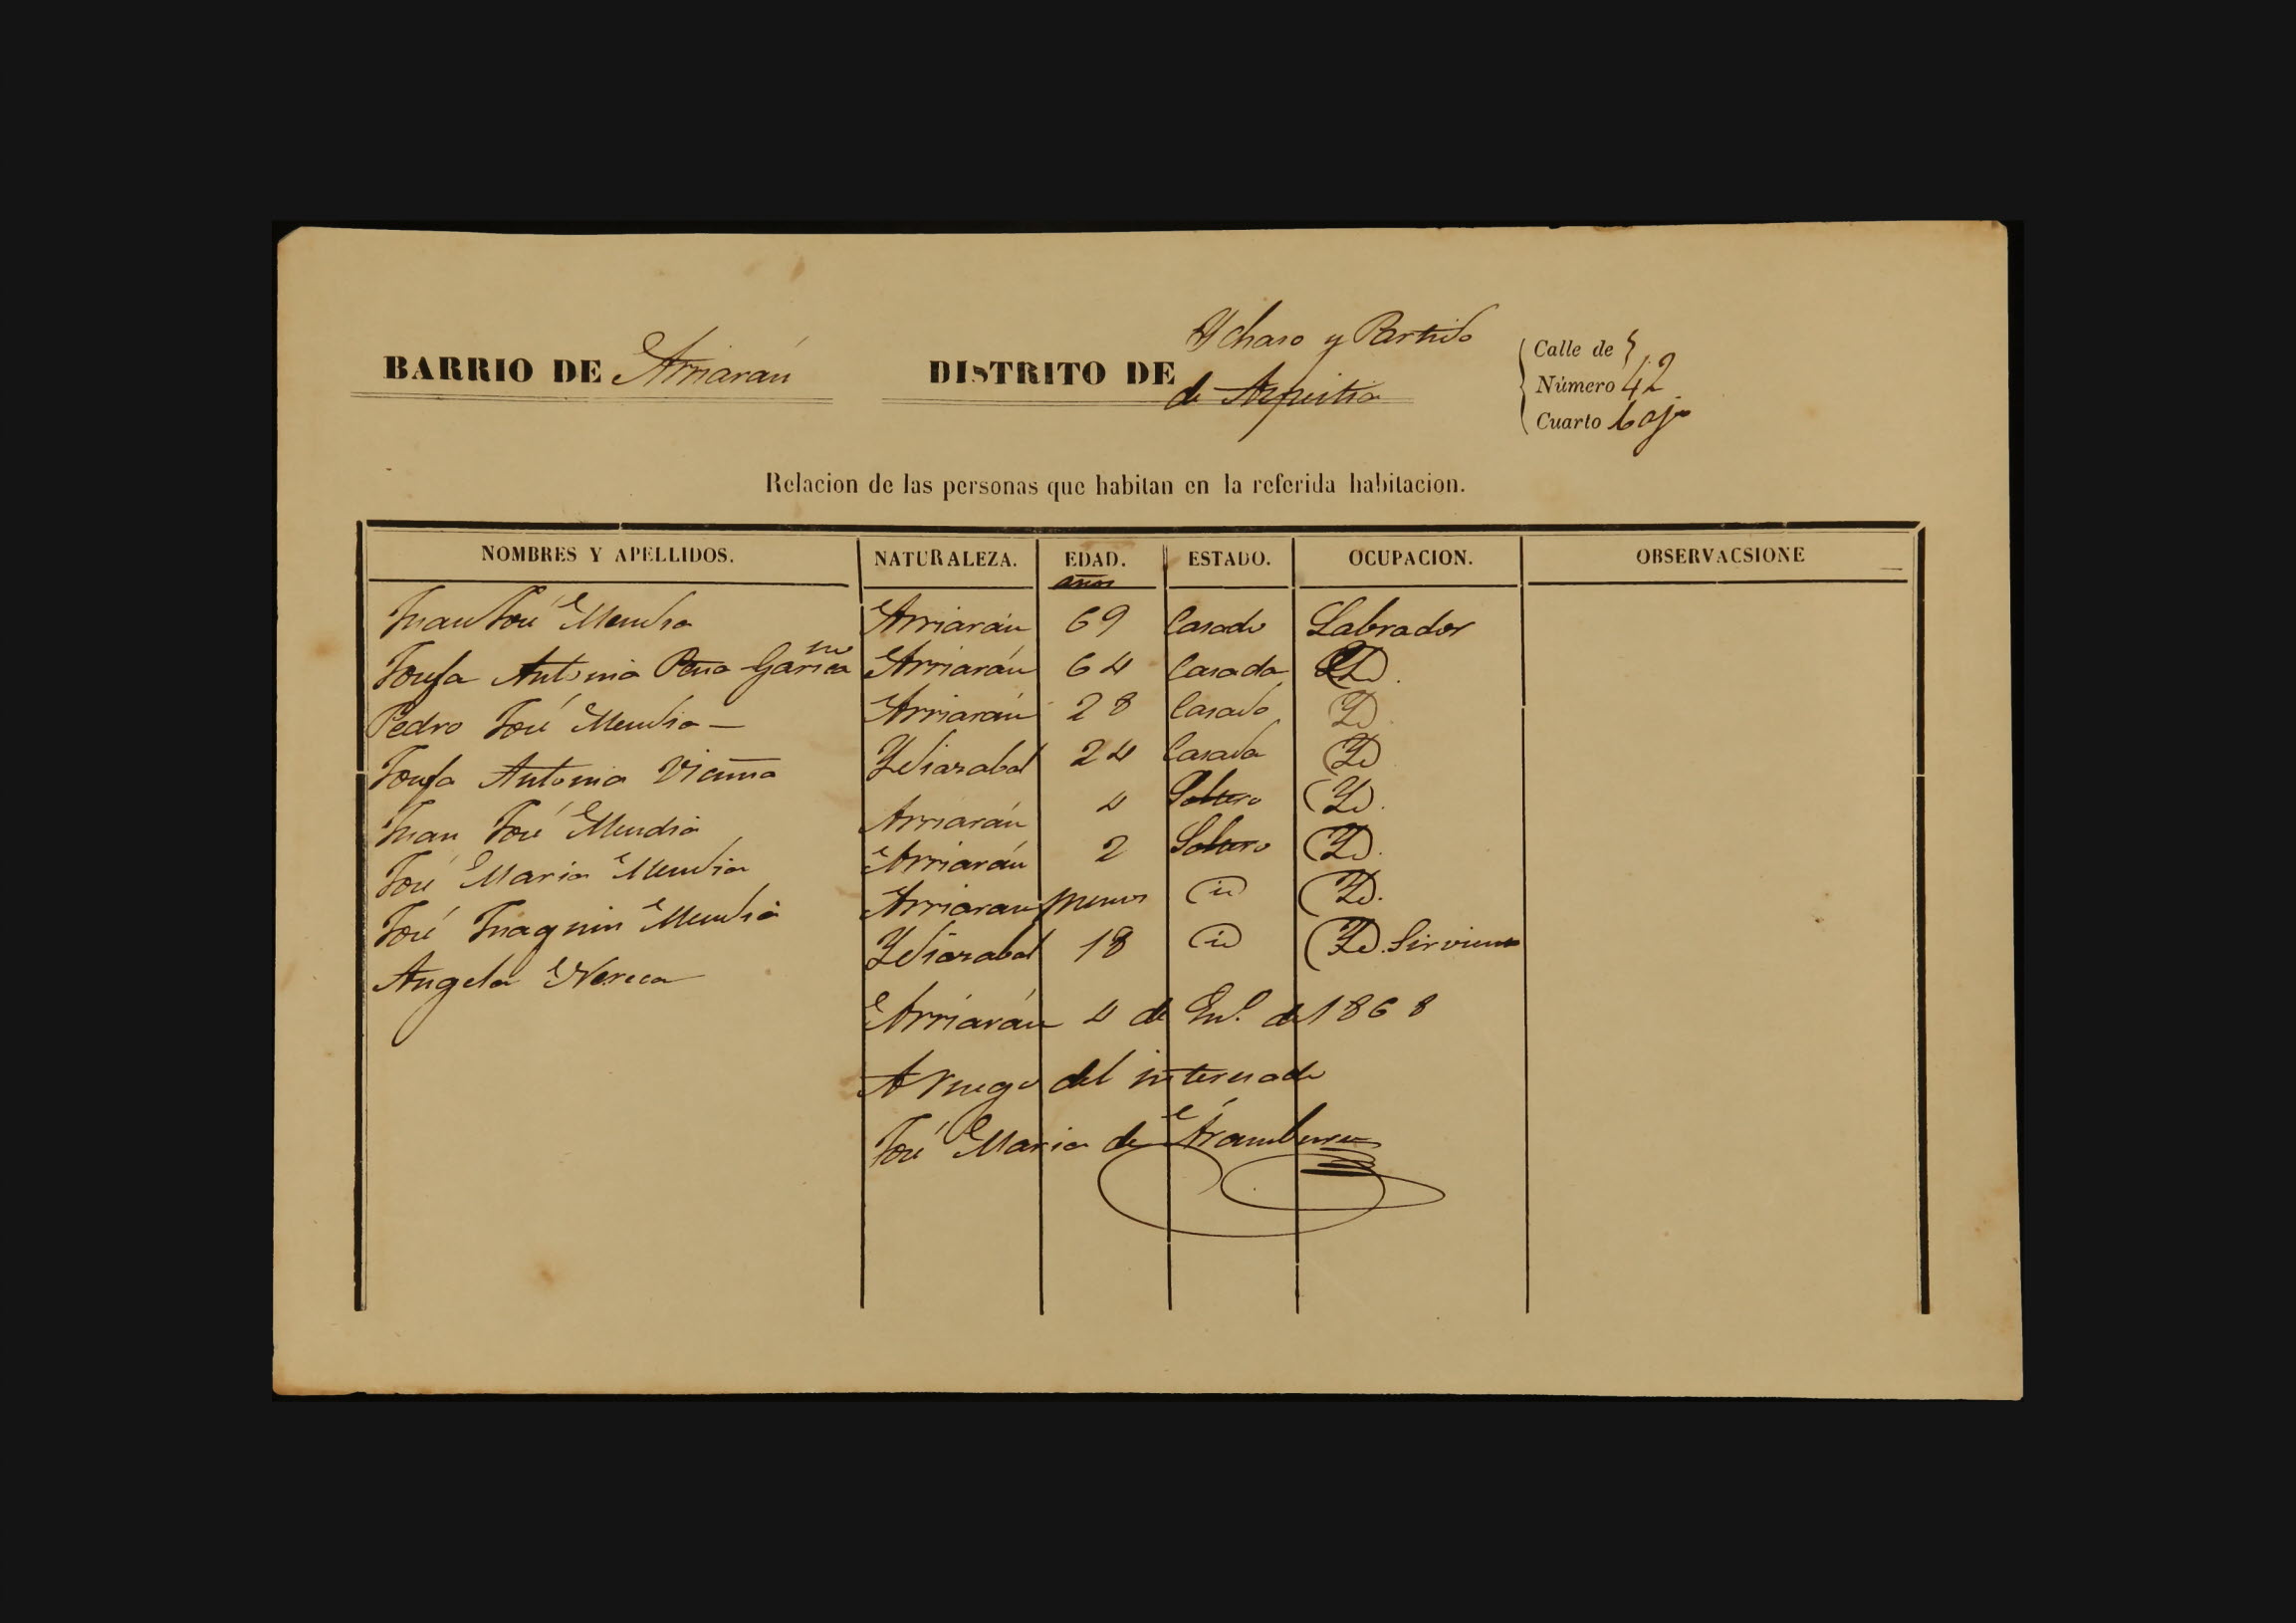 BARRIO DE Arriarán DISTRITO DE Ychaso y Partido
de Azpeitia
Calle de
Número 42
Cuarto bajo
Relacion de las personas que habitan en la referida habitacion.
NOMBRES Y APELLIDOS. NATURALEZA. EDAD. ESTADO. OCUPACION. OBSERVACSIONE
años
Juan José Mendia Arriarán 69 Casado Labrador
Josefa Antonia Pena Arriarán 64 Casada Yd.
Pedro José Mendia Arriarán 28 Casado Yd
Josefa Antonia Vicuña Ydiazabal 24 Casada Yd
Juan José Mendia Arriarán 4 Soltero Yd.
José Maria Mendia Arriarán 2 Soltero Yd.
José Juaquin Mendia Arriaran menor id Yd.
Angela Ydiazabal 18 id Yd. Sirviente
Arriarán 4 de En.º de 1868
A ruego del interesado
José Maria de Aramburu